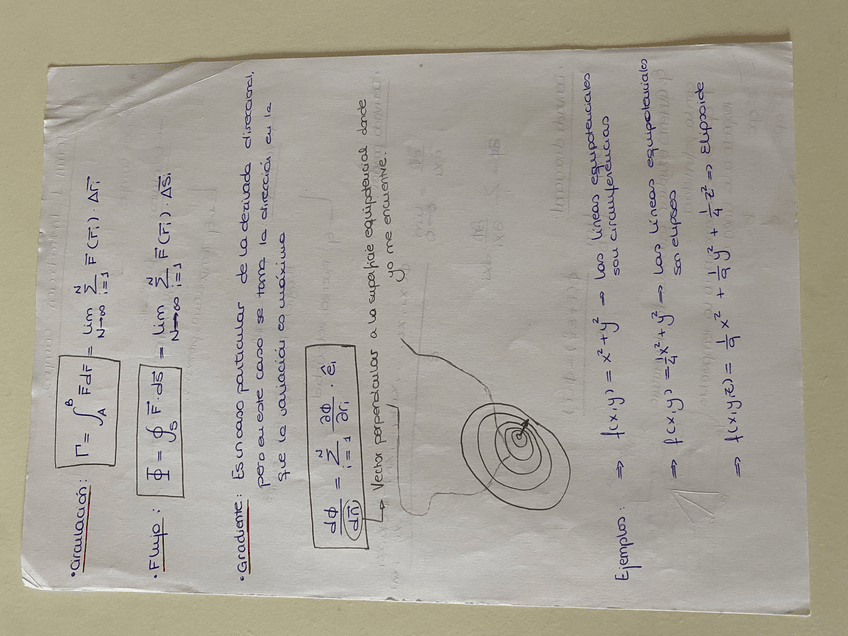 • Circulación: Γ = ∫_A^B F⃗ dr⃗ = lim_{N→∞} Σ_{i=1}^N F⃗(r⃗i) · Δr⃗i
• Flujo: Φ = ∮_S F⃗ · dS⃗ = lim_{N→∞} Σ_{i=1}^N F⃗(r⃗i) · ΔS⃗i
• Gradiente: Es un caso particular de la derivada direccional,
pero en este caso se toma la dirección en la
que la variación es máxima
dϕ/dn⃗ = Σ_{i=1}^N ∂ϕ/∂ri · êi
→ Vector perpendicular a la superficie equipotencial donde
yo me encuentre.
Ejemplos: ⇒ f(x,y) = x² + y² → Las líneas equipotenciales
son circunferencias
⇒ f(x,y) = 1/4 x² + y² → Las líneas equipotenciales
son elipses
⇒ f(x,y,z) = 1/9 x² + 1/9 y² + 1/4 z² ⇒ Elipsoide